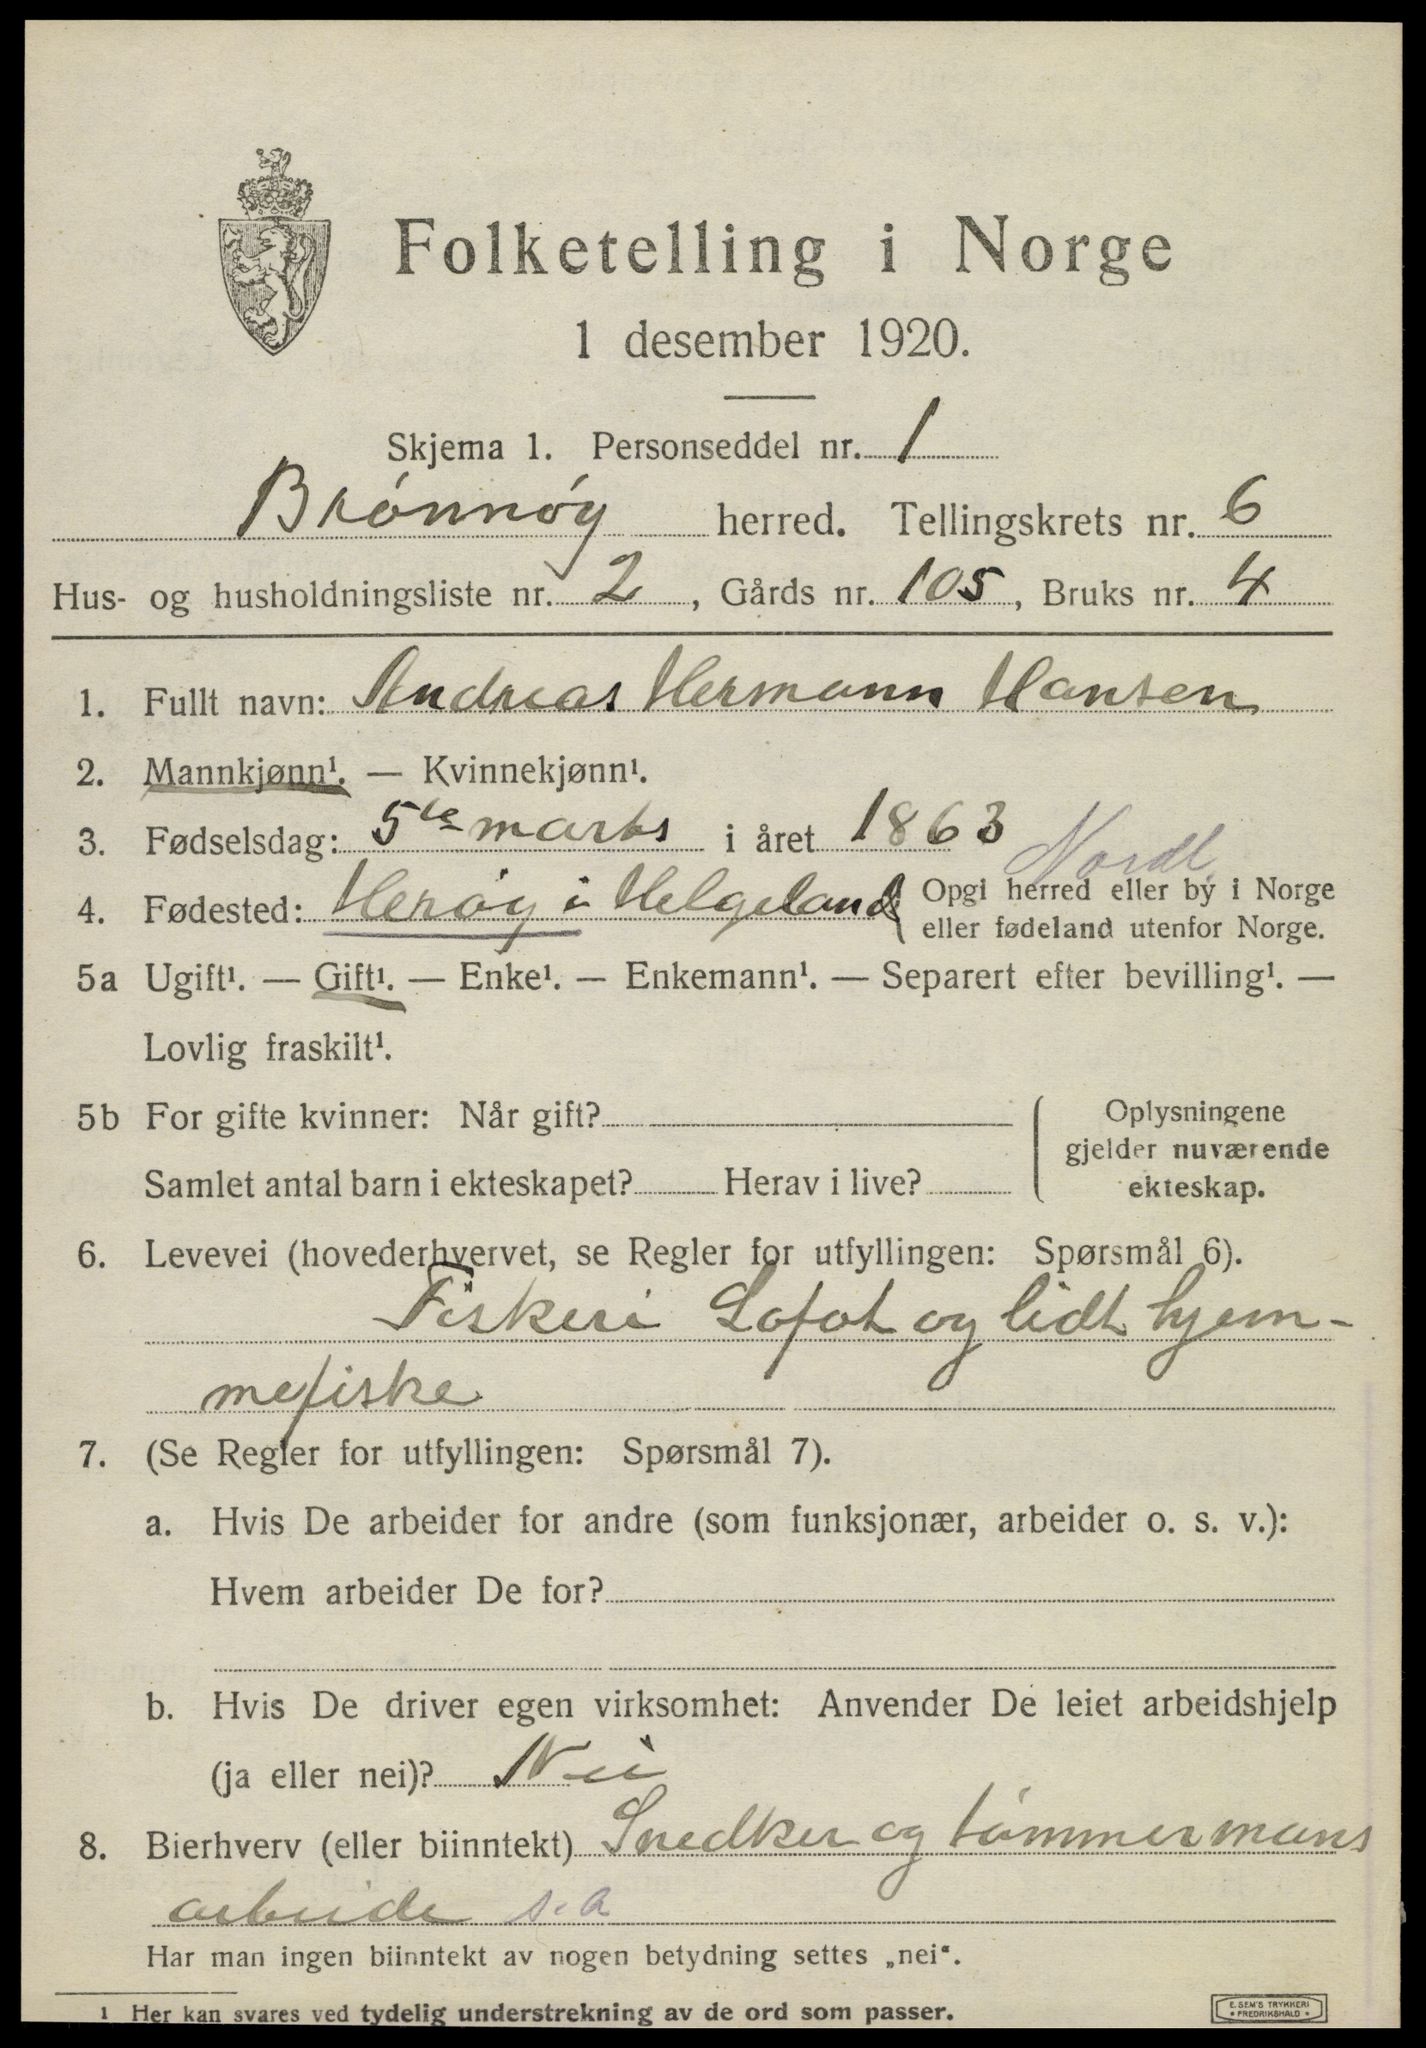 Folketelling i Norge
1 desember 1920.
Skjema 1. Personseddel nr. 1
Brónnóy herred. Tellingskrets nr. 6
Hus- og husholdningsliste nr. 2, Gårds nr. 105, Bruks nr. 4
1. Fullt navn: Andreas Hermann Hansen
2. Mannkjønn¹. — Kvinnekjønn¹.
3. Fødselsdag: 5te marts i året 1863
Nordl.
4. Fødested: Heróy i Helgeland Opgi herred eller by i Norge
eller fødeland utenfor Norge.
5a Ugift¹. — Gift¹. — Enke¹. — Enkemann¹. — Separert efter bevilling¹. —
Lovlig fraskilt¹.
5b For gifte kvinner: Når gift? Oplysningene
gjelder nuværende
Samlet antal barn i ekteskapet? Herav i live? ekteskap.
6. Levevei (hovederhvervet, se Regler for utfyllingen: Spørsmål 6).
Fiskeri Lofot og lidt hjem-
mefiske
7. (Se Regler for utfyllingen: Spørsmål 7).
a. Hvis De arbeider for andre (som funksjonær, arbeider o. s. v.):
Hvem arbeider De for?
b. Hvis De driver egen virksomhet: Anvender De leiet arbeidshjelp
(ja eller nei)? Nei
8. Bierhverv (eller biinntekt) Snedker og tómmermans
arbeide s.a
Har man ingen biinntekt av nogen betydning settes „nei“.
1 Her kan svares ved tydelig understrekning av de ord som passer.
E. SEM'S TRYKKERI
• FREDRIKSHALD •